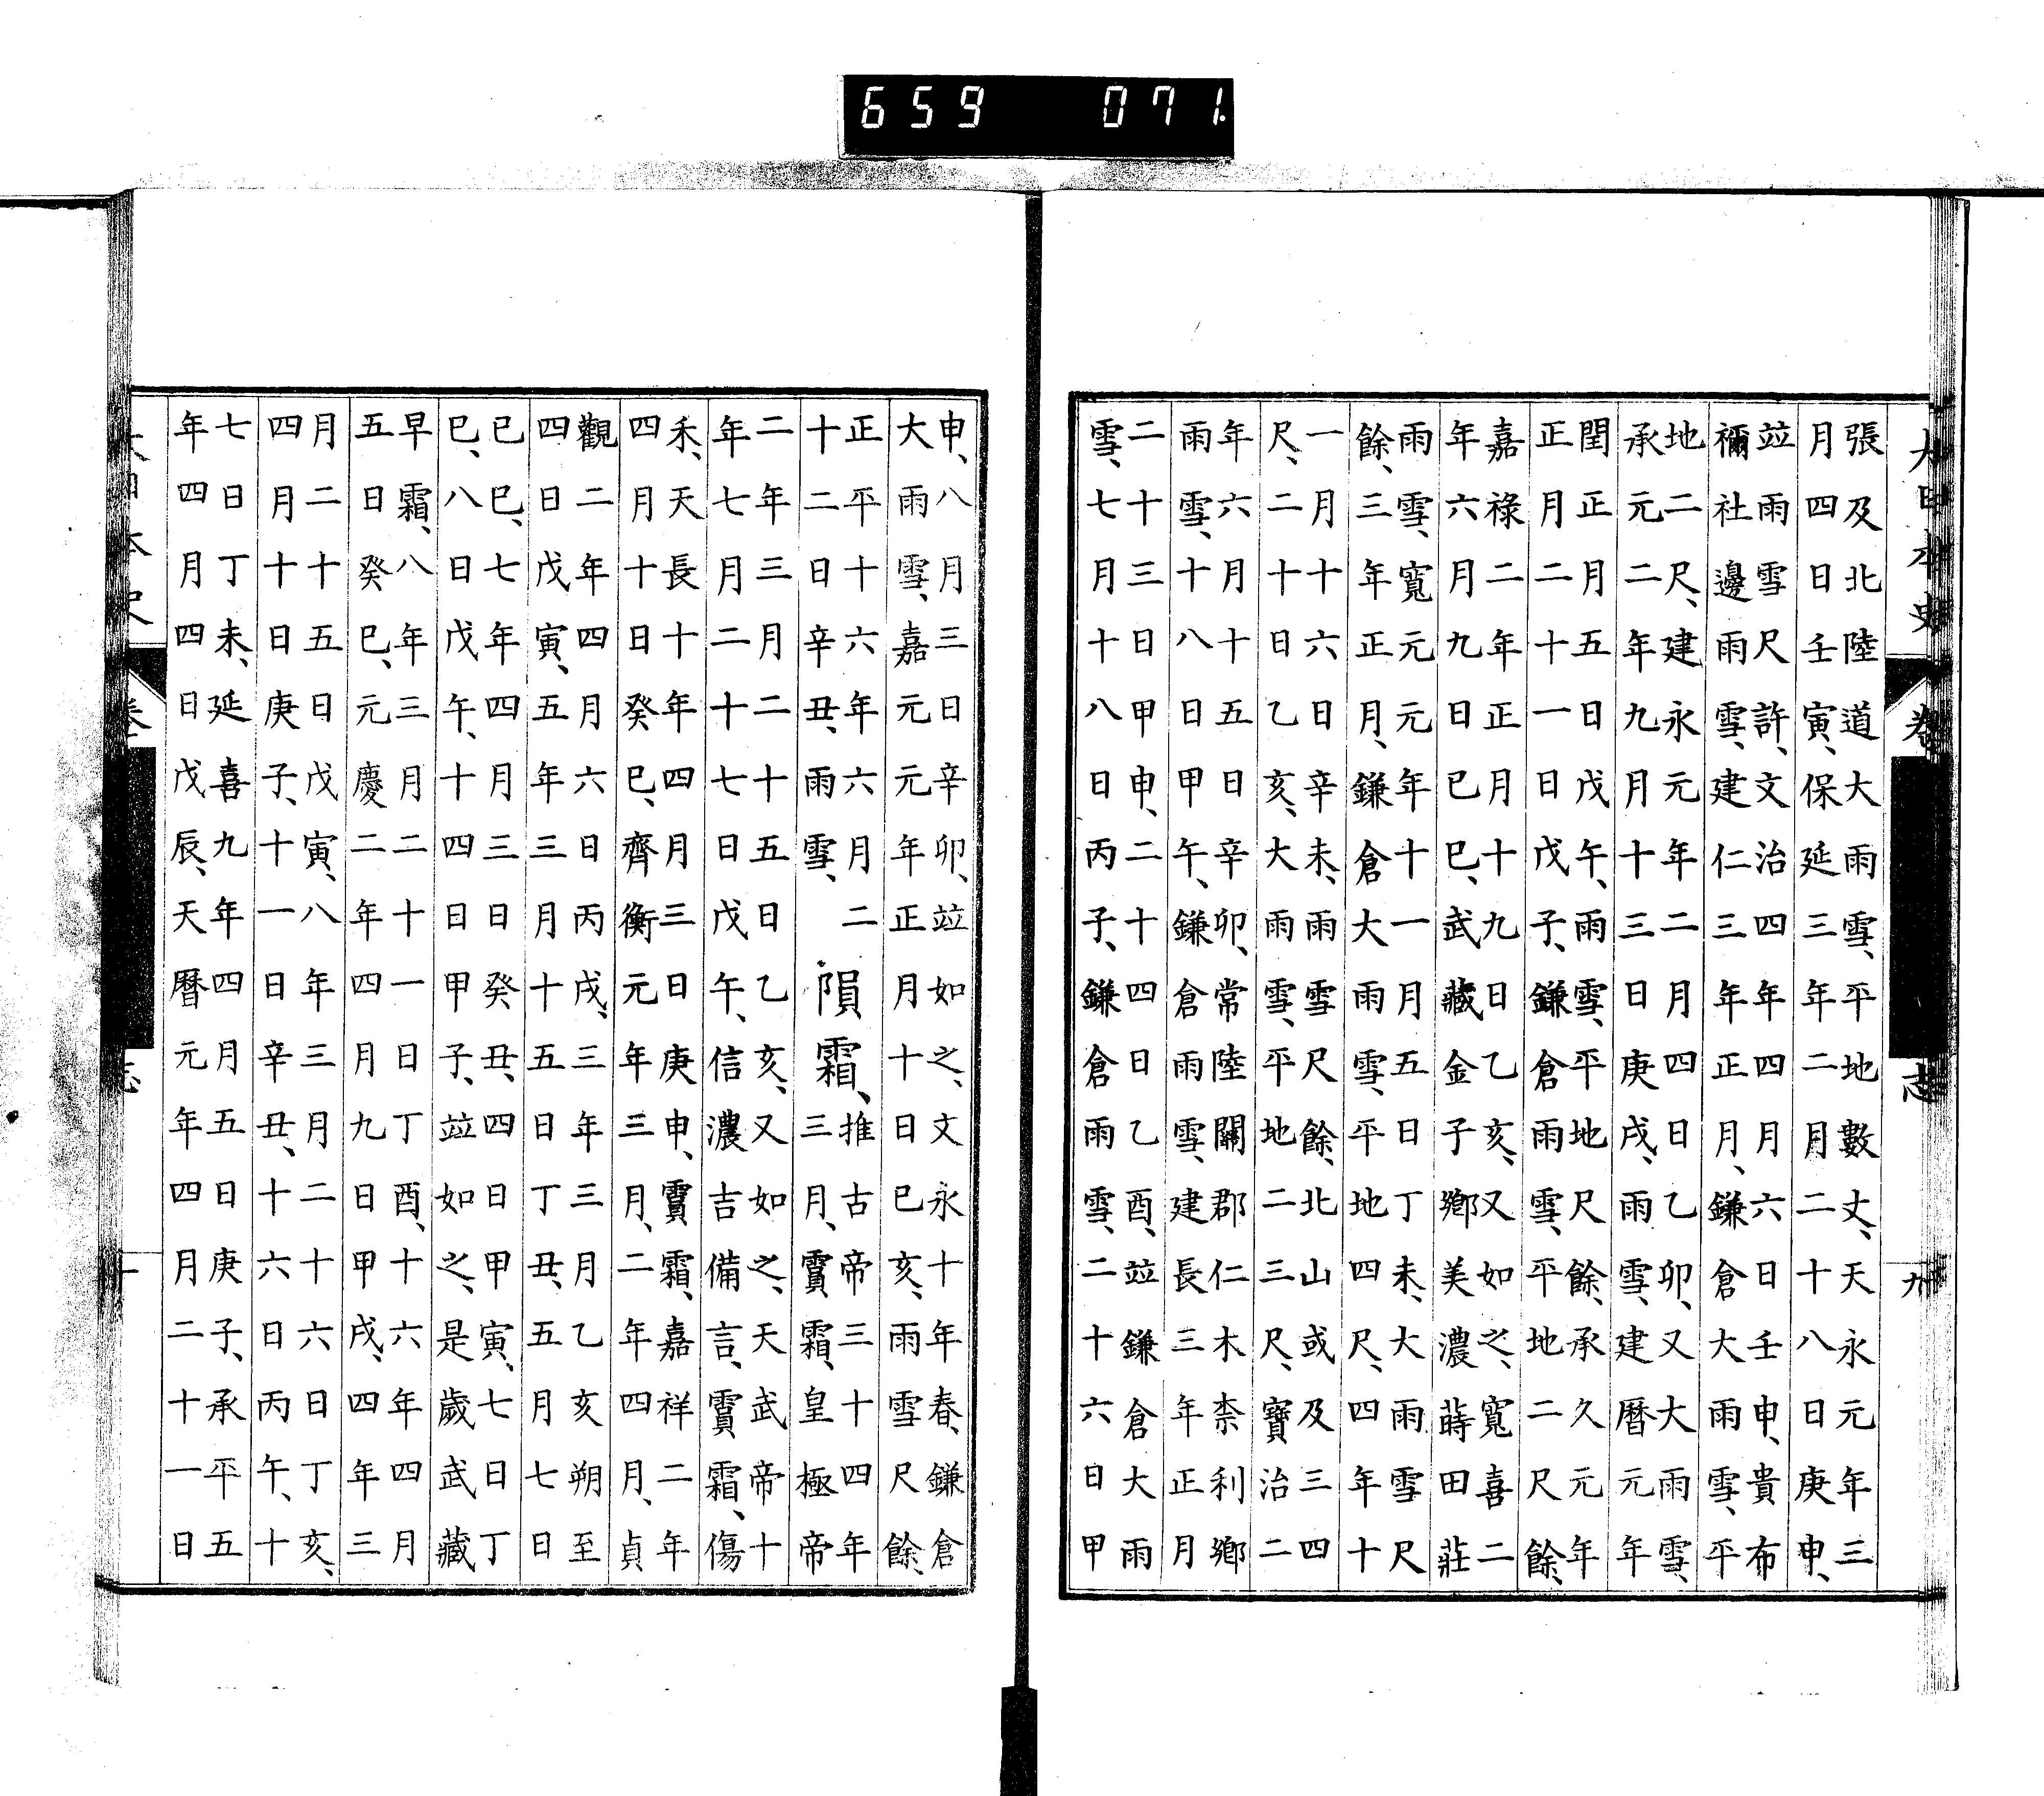 659 071.
大日本史 卷 志 九
張及北陸道大雨雪、平地數丈、天永元年三
月四日壬寅、保延三年二月二十八日庚申、
竝雨雪尺許、文治四年四月六日壬申、貴布
禰社邊雨雪、建仁三年正月、鎌倉大雨雪、平
地二尺、建永元年二月四日乙卯、又大雨雪、
承元二年九月十三日庚戌、雨雪、建曆元年
閏正月五日戊午、雨雪、平地尺餘、承久元年
正月二十一日戊子、鎌倉雨雪、平地二尺餘、
嘉祿二年正月十九日乙亥、又如之、寬喜二
年六月九日巳巳、武藏金子鄉美濃蒔田莊
雨雪、寬元元年十一月五日丁未、大雨雪尺
餘、三年正月、鎌倉大雨雪、平地四尺、四年十
一月十六日辛未、雨雪尺餘、北山或及三四
尺、二十日乙亥、大雨雪、平地二三尺、寶治二
年六月十五日辛卯、常陸關郡仁木柰利鄉
雨雪、十八日甲午、鎌倉雨雪、建長三年正月
二十三日甲申、二十四日乙酉、竝鎌倉大雨
雪、七月十八日丙子、鎌倉雨雪、二十六日甲
申、八月三日辛卯、竝如之、文永十年春、鎌倉
大雨雪、嘉元元年正月十日巳亥、雨雪尺餘、
正平十六年六月二
十二日辛丑、雨雪、
隕霜、推古帝三十四年
三月、霣霜、皇極帝
二年三月二十五日乙亥、又如之、天武帝十
年七月二十七日戊午、信濃吉備言、霣霜、傷
禾、天長十年四月三日庚申、霣霜、嘉祥二年
四月十日癸巳、齊衡元年三月、二年四月、貞
觀二年四月六日丙戌、三年三月乙亥朔至
四日戊寅、五年三月十五日丁丑、五月七日
已巳、七年四月三日癸丑、四日甲寅、七日丁
巳、八日戊午、十四日甲子、竝如之、是歲武藏
早霜、八年三月二十一日丁酉、十六年四月
五日癸巳、元慶二年四月九日甲戌、四年三
月二十五日戊寅、八年三月二十六日丁亥、
四月十日庚子、十一日辛丑、十六日丙午、十
七日丁未、延喜九年四月五日庚子、承平五
年四月四日戊辰、天曆元年四月二十一日
大日本史 卷 志 十